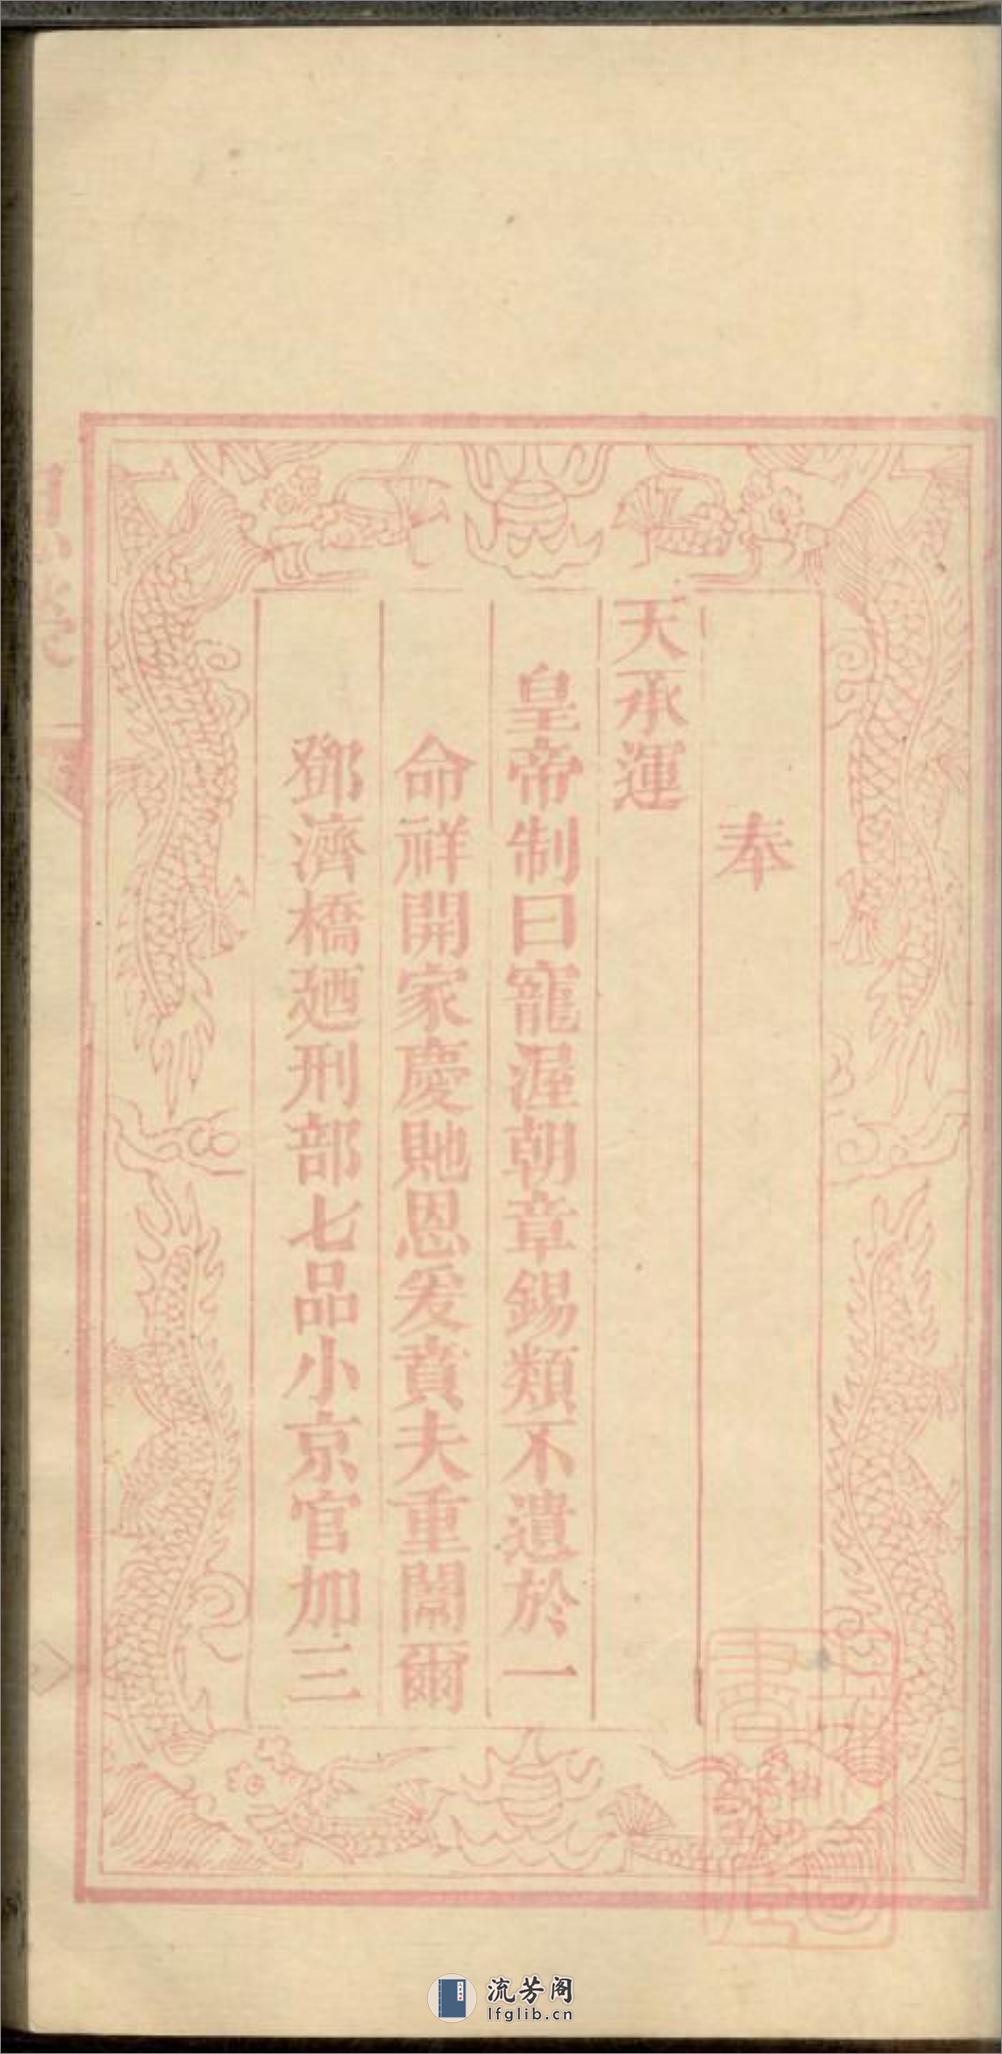 奉
天承運
皇帝制曰寵渥朝章錫類不遺於一
命祥開家慶貤恩爰賁夫重闈爾
鄧濟橋廼刑部七品小京官加三
流芳阁
lfglib.cn